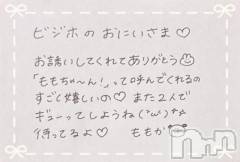 ビジホのおにいさま♡
お誘いしてくれてありがとう
「ももちゃ〜ん!」って呼んでくれるの
すごく嬉しいの♡ また2人で
ギューッてしようね(*´ω`)
待ってるよ♡ ももか